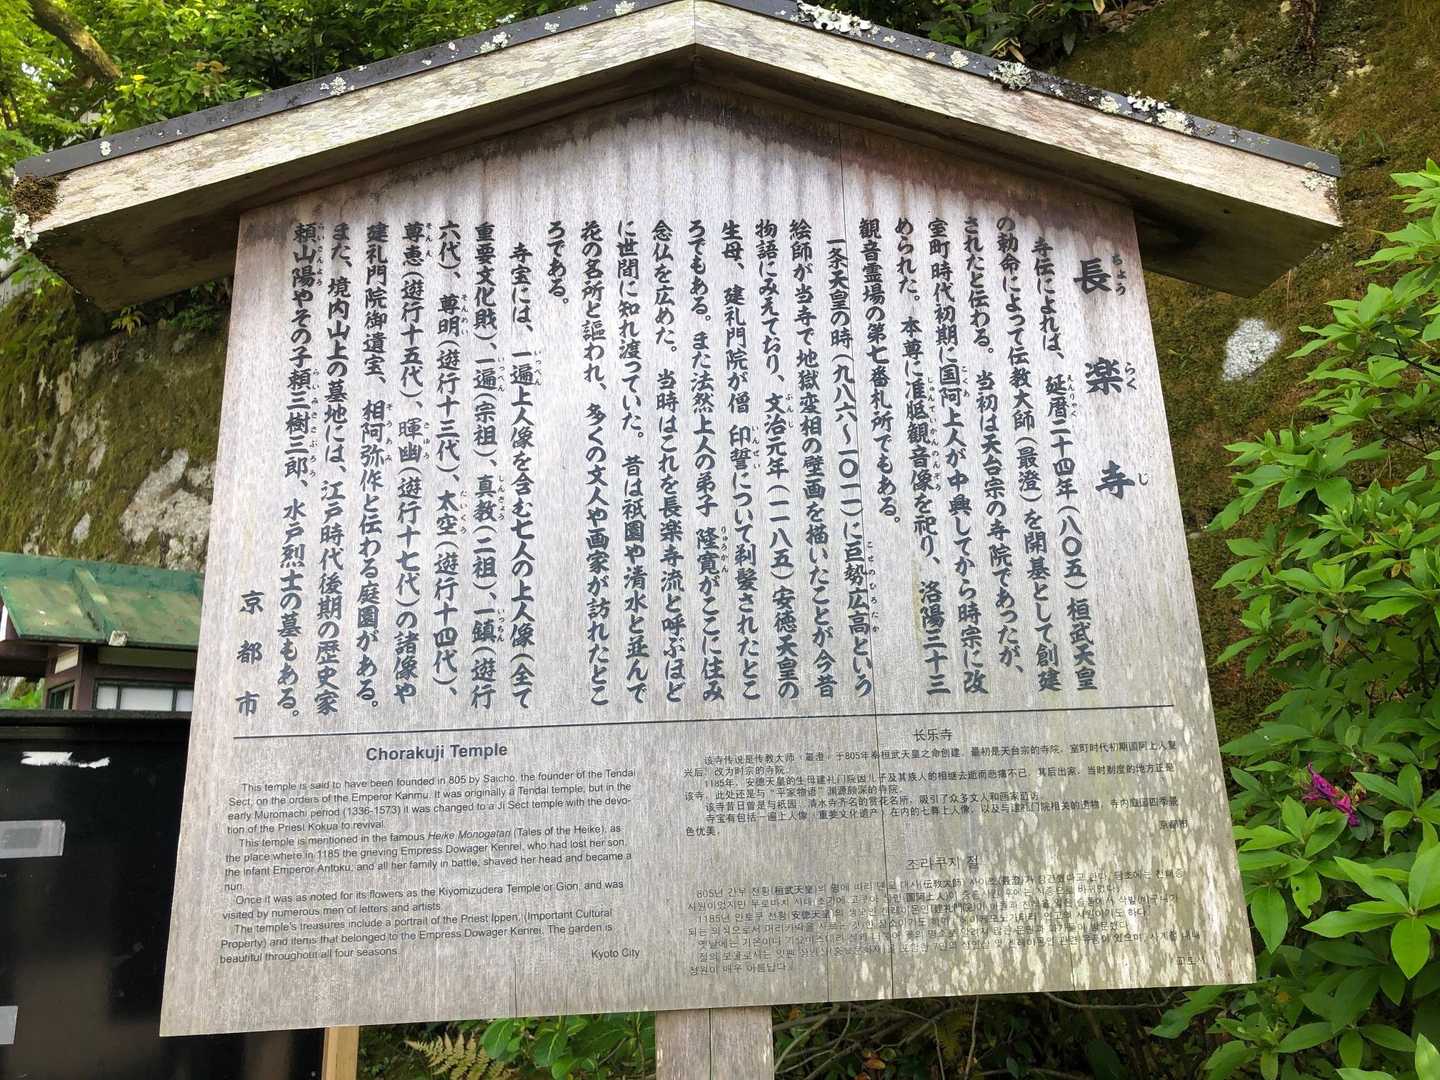 長楽寺
寺伝によれば、延暦二十四年(八〇五)桓武天皇
の勅命によって伝教大師(最澄)を開基として創建
されたと伝わる。当初は天台宗の寺院であったが、
室町時代初期に国阿上人が中興してから時宗に改
められた。本尊に准胝観音像を祀り、洛陽三十三
観音霊場の第七番札所でもある。
一条天皇の時(九八六〜一〇一一)に巨勢広高という
絵師が当寺で地獄変相の壁画を描いたことが今昔
物語にみえており、文治元年(一一八五)安徳天皇の
生母、建礼門院が僧 印誓について剃髪されたとこ
ろでもある。また法然上人の弟子 隆寛がここに住み
念仏を広めた。当時はこれを長楽寺流と呼ぶほど
に世間に知れ渡っていた。昔は祇園や清水と並んで
花の名所と謳われ、多くの文人や画家が訪れたとこ
ろである。
寺宝には、一遍上人像を含む七人の上人像(全て
重要文化財)、一遍(宗祖)、真教(二祖)、一鎮(遊行
六代)、尊明(遊行十三代)、太空(遊行十四代)、
尊恵(遊行十五代)、暉幽(遊行十七代)の諸像や
建礼門院御遺宝、相阿弥作と伝わる庭園がある。
また、境内山上の墓地には、江戸時代後期の歴史家
頼山陽やその子頼三樹三郎、水戸烈士の墓もある。
京都市
Chorakuji Temple
This temple is said to have been founded in 805 by Saicho, the founder of the Tendai
Sect, on the orders of the Emperor Kanmu. It was originally a Tendai temple, but in the
early Muromachi period (1336-1573) it was changed to a Ji Sect temple with the devo-
tion of the Priest Kokua to revival.
This temple is mentioned in the famous Heike Monogatari (Tales of the Heike), as
the place where in 1185 the grieving Empress Dowager Kenrei, who had lost her son,
the infant Emperor Antoku, and all her family in battle, shaved her head and became a
nun.
Once it was as noted for its flowers as the Kiyomizudera Temple or Gion, and was
visited by numerous men of letters and artists.
The temple's treasures include a portrait of the Priest Ippen, (Important Cultural
Property) and items that belonged to the Empress Dowager Kenrei. The garden is
beautiful throughout all four seasons.
Kyoto City
长乐寺
该寺传说是传教大师·最澄,于805年奉桓武天皇之命创建。最初是天台宗的寺院,室町时代初期国阿上人复
兴后,改为时宗的寺院。
1185年,安德天皇的生母建礼门院因儿子及其族人的相继去逝而悲痛不已,其后出家,当时剃度的地方正是
该寺。此处还是与“平家物语”渊源颇深的寺院。
该寺昔日曾是与祇园、清水寺齐名的赏花名所,吸引了众多文人和画家造访。
寺宝有包括一遍上人像(重要文化遗产)在内的七尊上人像,以及与建礼门院相关的遗物,寺内庭园四季景
色优美。
京都市
조라쿠지 절
정원이 매우 아름답다.
교토시